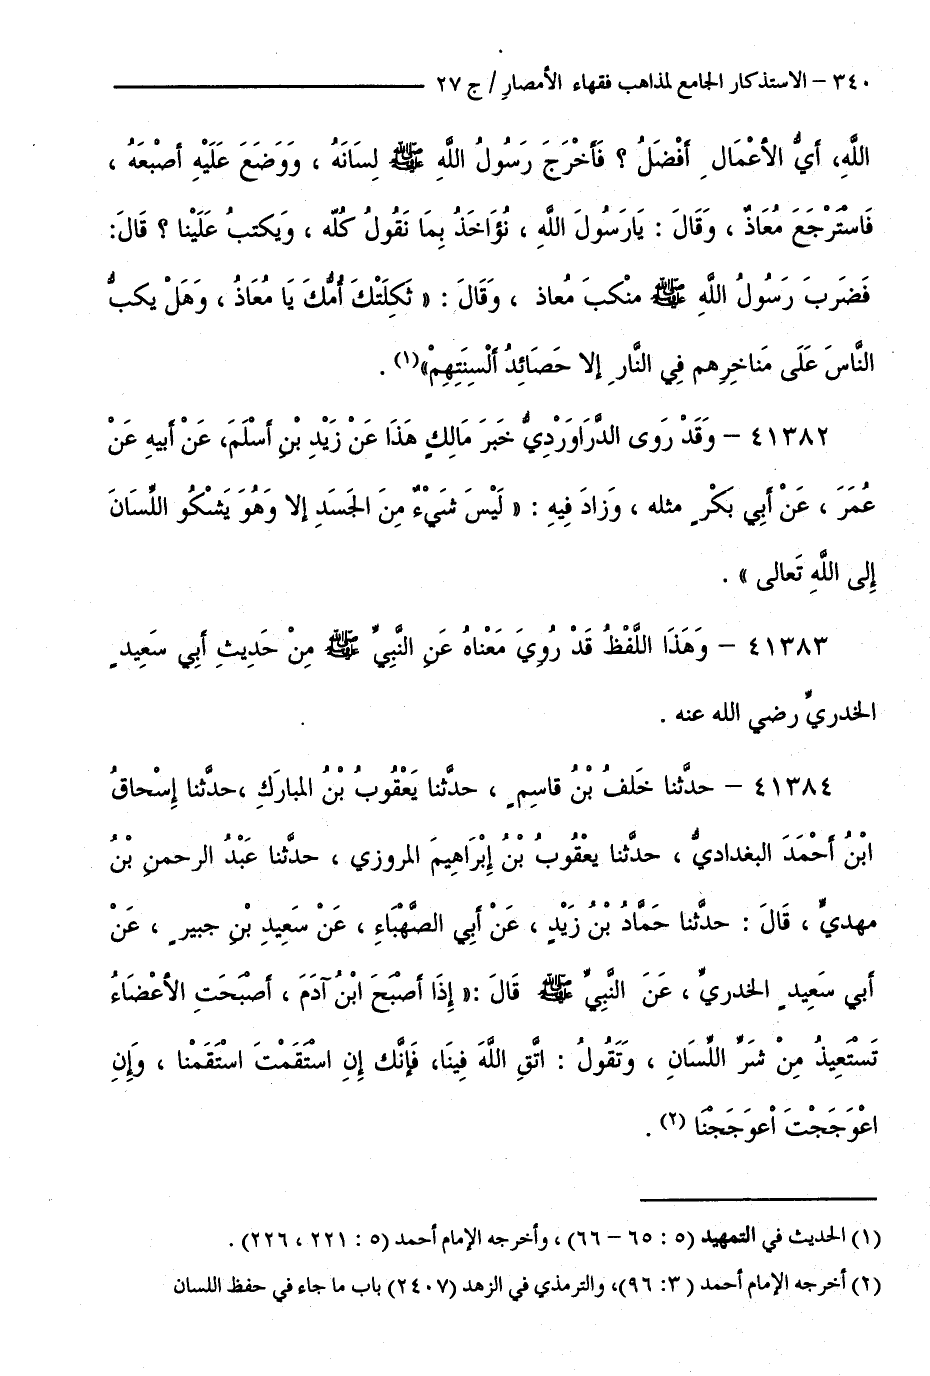 ٣٤٠ – الاستذكار الجامع لمذاهب فقهاء الأمصار / ج ٢٧
اللَّهِ، أَيُّ الأعْمَالِ أَفْضَلُ ؟ فَأَخْرَجَ رَسُولُ اللَّهِ ﷺ لِسَانَهُ ، وَوَضَعَ عَلَيْهِ أصْبعَهُ ،
فَاسْتَرْجَعَ مُعَاذٌ ، وَقَالَ : يَارَسُولَ اللَّهِ ، نُؤَاخَذُ بِمَا نَقُولُ كُلّه ، وَيَكتبُ عَلَيْنا ؟ قَالَ:
فَضَرَبَ رَسُولُ اللَّهِ ﷺ منْكبَ مُعاذ ، وَقَالَ : « ثَكِلَتْكَ أُمُّكَ يَا مُعَاذُ ، وَهَلْ يكبُّ
النَّاسَ عَلَى مَناخرِهم فِي النَّارِ إلا حَصَائِدُ ألْسِنَتِهِمْ»(١) .
٤١٣٨٢ – وَقَدْ رَوى الدَّرَاوَرْدِيُّ خَبَرَ مَالِكٍ هَذَا عَنْ زَيْدِ بْنِ أسْلَمَ، عَنْ أبيهِ عَنْ
عُمَرَ ، عَنْ أَبِي بَكْرٍ مثله ، وَزادَ فِيهِ : « لَيْسَ شَيْءٌ مِنَ الجَسَدِ إلا وَهُوَ يَشْكُو اللِّسَانَ
إِلى اللَّهِ تَعالى » .
٤١٣٨٣ – وَهَذَا اللَّفْظُ قَدْ رُوِيَ مَعْناهُ عَنِ النَّبِيِّ ﷺ مِنْ حَدِيثِ أبي سَعِيدٍ
الخدريِّ رضي الله عنه .
٤١٣٨٤ – حدَّثنا خَلَفُ بْنُ قاسِمٍ ، حدَّثنا يَعْقُوبُ بْنُ المبارَكِ ،حدَّثنا إِسْحاقُ
ابْنُ أَحْمَدَ البغداديُّ ، حدَّثنا يعْقُوبُ بْنُ إِبْرَاهِيمَ المروزي ، حدَّثنا عَبْدُ الرحمنِ بْنُ
مهديِّ ، قَالَ : حدَّثنا حَمَّادُ بْنُ زَيْدٍ ، عَنْ أَبِي الصَّهْبَاءِ ، عَنْ سَعِيدِ بْنِ جبيرٍ ، عَنْ
أَبي سَعِيدٍ الخدريِّ ، عَنَ النَّبِيِّ ﷺ قَالَ :« إِذَا أصْبَحَ ابْنُ آدَمَ ، أَصْبَحَتِ الأعْضَاءُ
تَسْتَعِيذُ مِنْ شَرِّ اللِّسَانِ ، وَتَقُولُ : اتَّقِ اللَّهَ فِينَا، فَإنَّك إنِ اسْتَقَمْتَ اسْتَقَمْنا ، وَإِنِ
اعْوَجَجْتَ اعوَجَجْنَا (٢) .
(١) الحديث في التمهيد (٥ : ٦٥ – ٦٦) ، وأخرجه الإمام أحمد (٥ : ٢٢١ ، ٢٢٦) .
(٢) أخرجه الإمام أحمد ( ٣: ٩٦)، والترمذي في الزهد (٢٤٠٧) باب ما جاء في حفظ اللسان